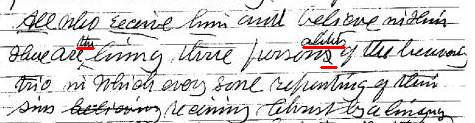 All who receive him and believe in him
there are the living three personsalities of the heavenly
trio in which every soul repenting of their
sins believing receiving Christ by a living